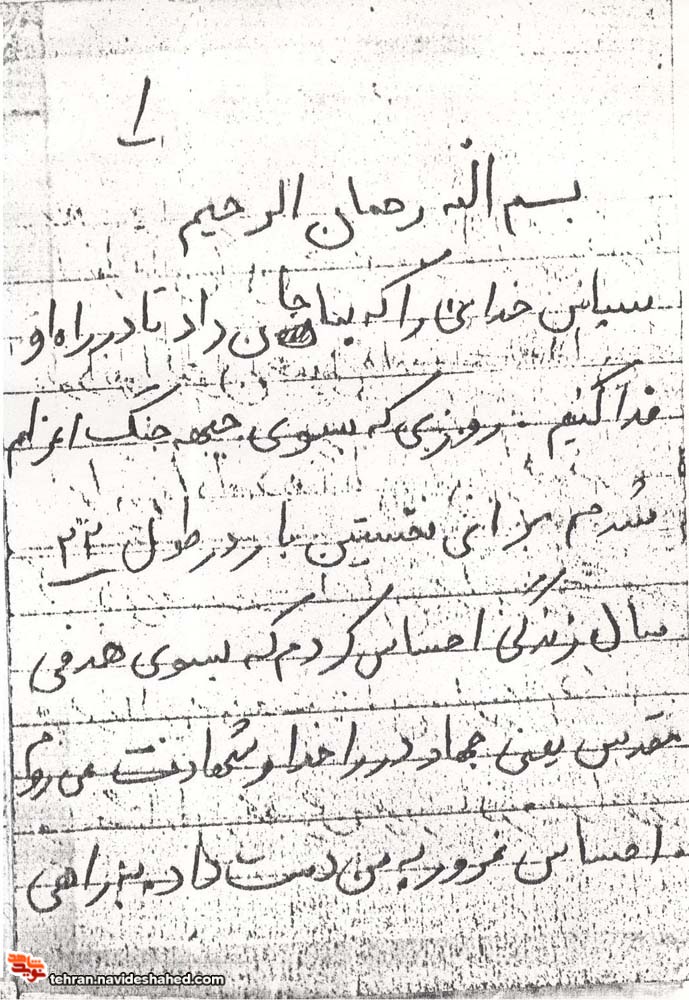 ۱
بسم الله رحمان الرحیم
سپاس خدائی را که بما جان داد تا در راه او
فدا کنیم. روزی که بسوی جبهه جنگ اعزام
شدم برای نخستین بار در طول ۲۲
سال زندگی احساس کردم که بسوی هدفی
مقدس یعنی جهاد در را خدا و شهادت می روم
احساس غرور به من دست داد. به راهی
نوید شاهد
tehran.navideshahed.com